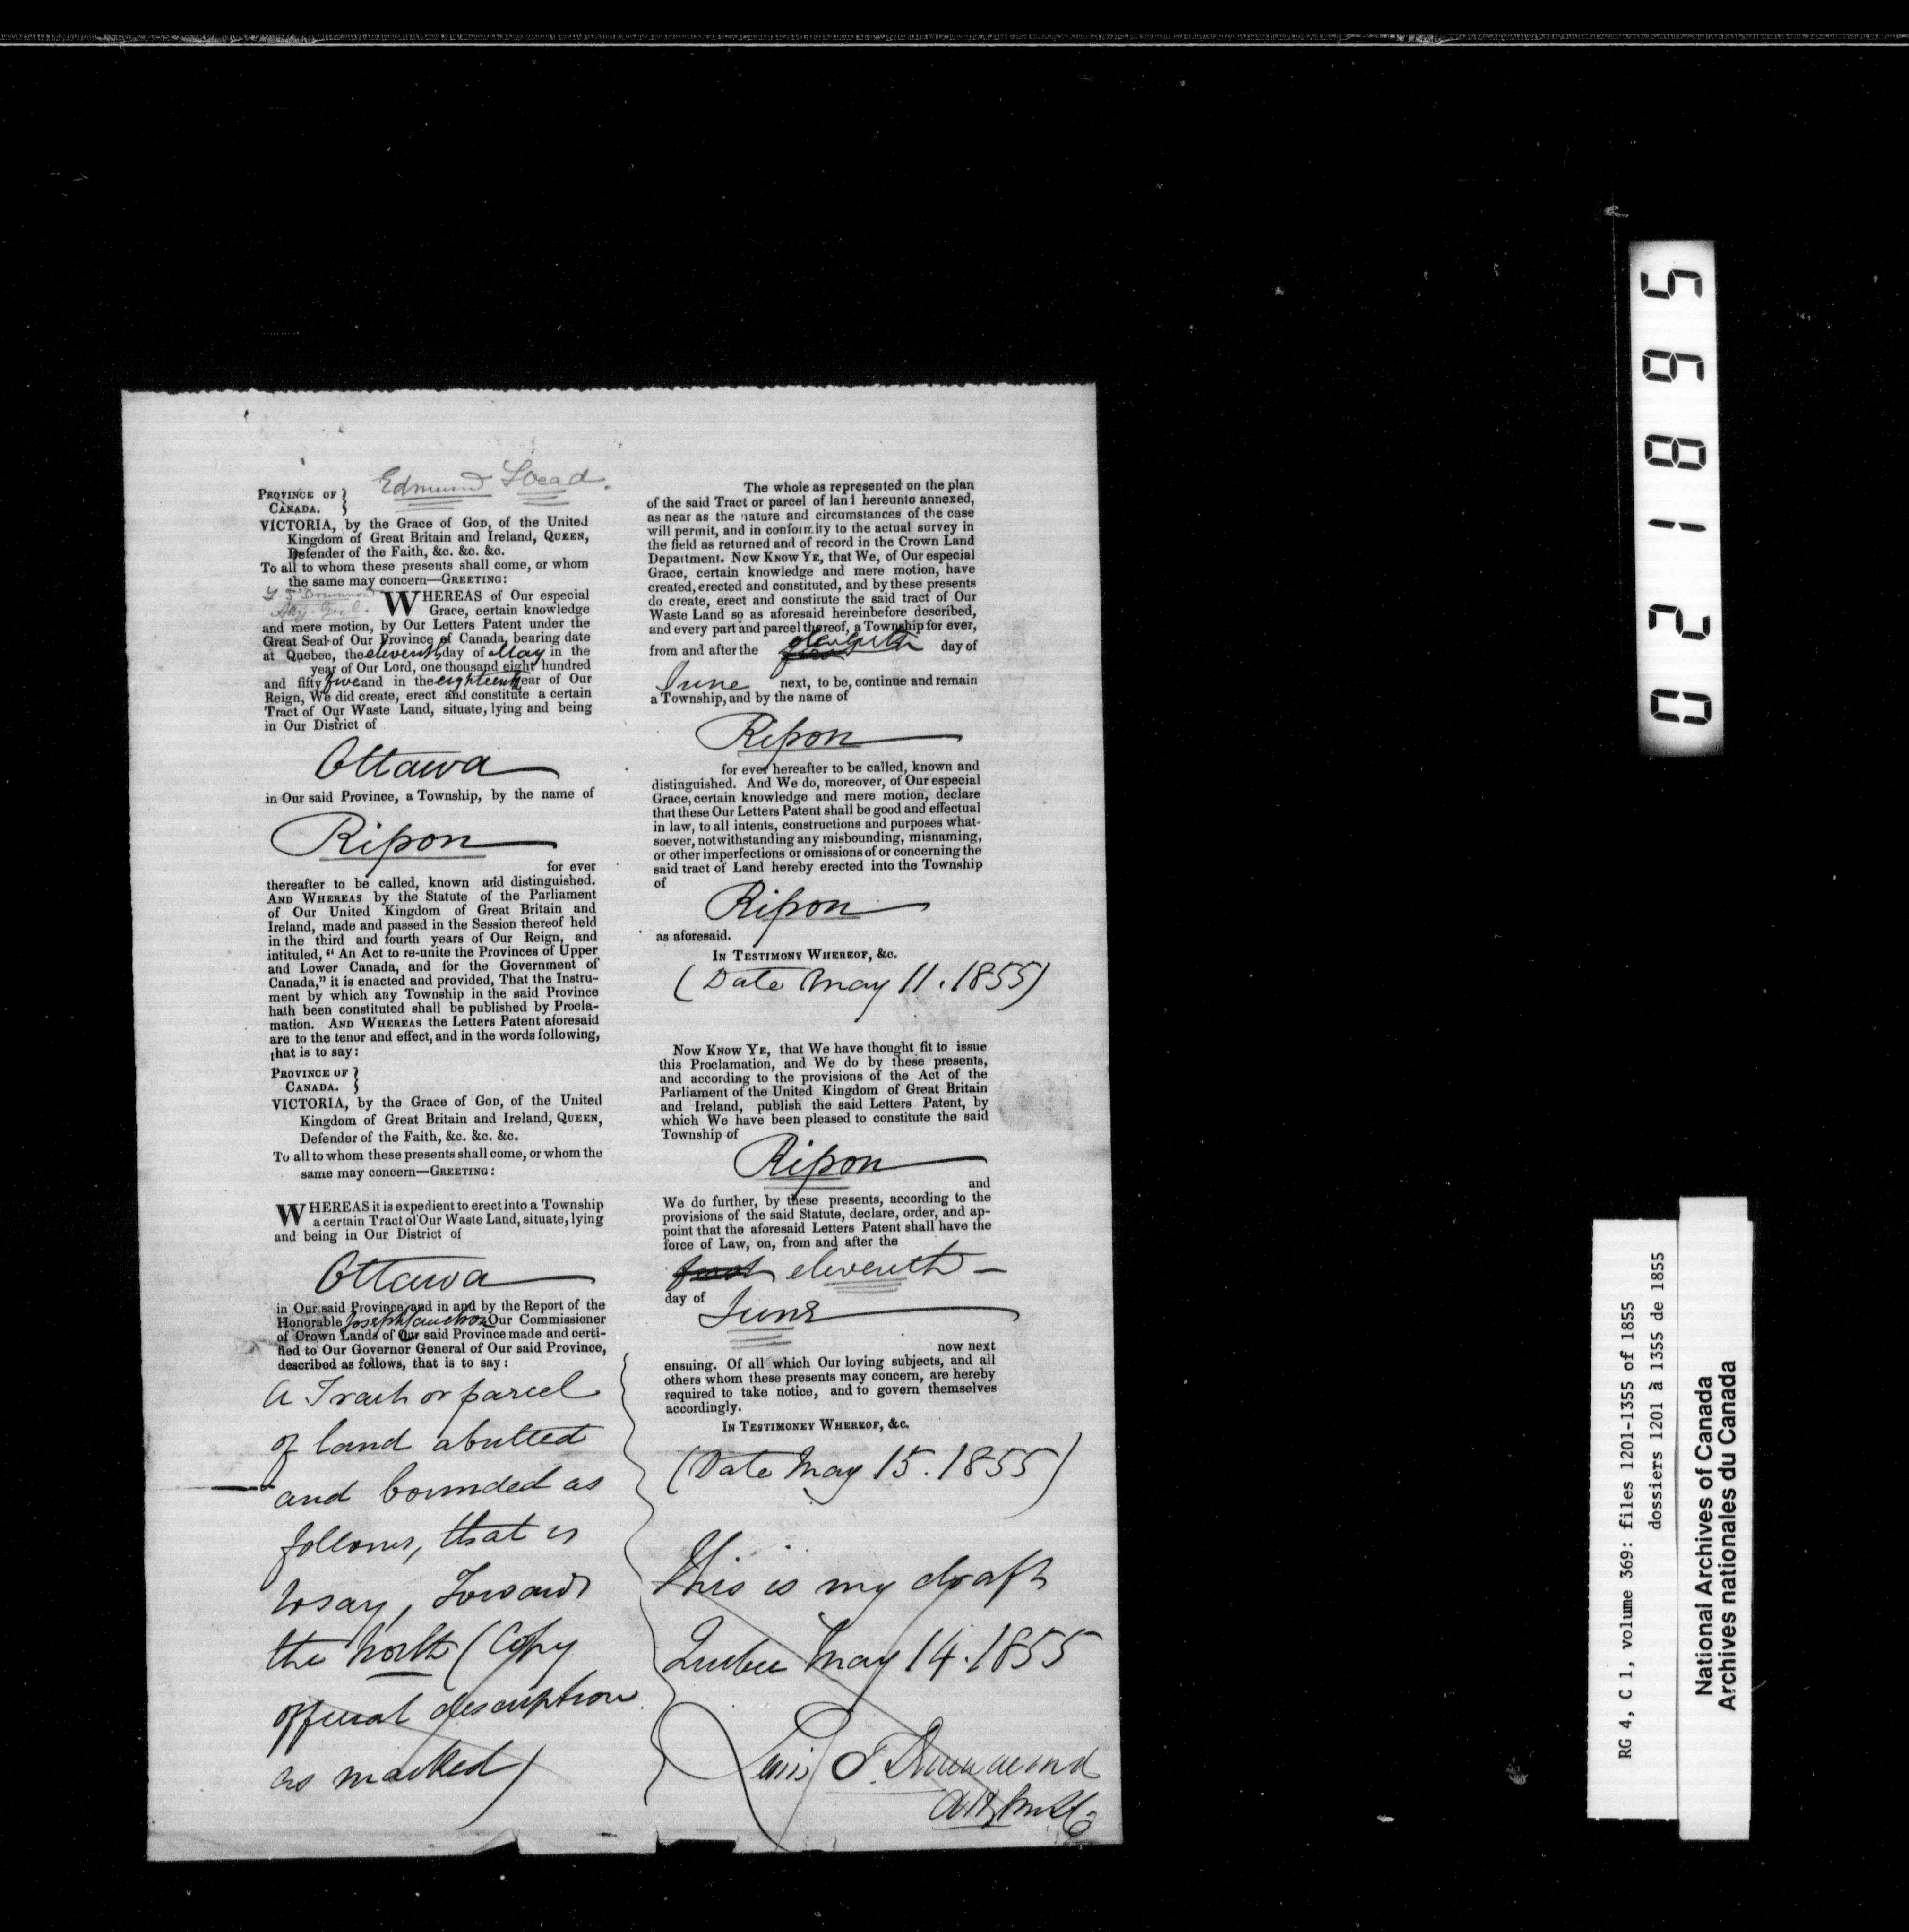 Edmund Head.
PROVINCE OF }
CANADA. }
VICTORIA, by the Grace of GOD, of the United
Kingdom of Great Britain and Ireland, QUEEN,
Defender of the Faith, &c. &c. &c.
To all to whom these presents shall come, or whom
the same may concern—GREETING:
WHEREAS of Our especial
Grace, certain knowledge
and mere motion, by Our Letters Patent under the
Great Seal of Our Province of Canada, bearing date
at Quebec, the eleventh day of May in the
year of Our Lord, one thousand eight hundred
and fifty five and in the eighteenth year of Our
Reign, We did create, erect and constitute a certain
Tract of Our Waste Land, situate, lying and being
in Our District of
Ottawa
in Our said Province, a Township, by the name of
Ripon
for ever
thereafter to be called, known and distinguished.
AND WHEREAS by the Statute of the Parliament
of Our United Kingdom of Great Britain and
Ireland, made and passed in the Session thereof held
in the third and fourth years of Our Reign, and
intituled, “ An Act to re-unite the Provinces of Upper
and Lower Canada, and for the Government of
Canada,” it is enacted and provided, That the Instru-
ment by which any Township in the said Province
hath been constituted shall be published by Procla-
mation. AND WHEREAS the Letters Patent aforesaid
are to the tenor and effect, and in the words following,
that is to say:
PROVINCE OF }
CANADA. }
VICTORIA, by the Grace of GOD, of the United
Kingdom of Great Britain and Ireland, QUEEN,
Defender of the Faith, &c. &c. &c.
To all to whom these presents shall come, or whom the
same may concern—GREETING:
WHEREAS it is expedient to erect into a Township
a certain Tract of Our Waste Land, situate, lying
and being in Our District of
Ottawa
in Our said Province, and in and by the Report of the
Honorable Joseph Cauchon Our Commissioner
of Crown Lands of Our said Province made and certi-
fied to Our Governor General of Our said Province,
described as follows, that is to say:
A Tract or parcel
of land abutted
and bounded as
follows, that is
to say, Towards
the North (Copy
official description
as marked)
The whole as represented on the plan
of the said Tract or parcel of land hereunto annexed,
as near as the nature and circumstances of the case
will permit, and in conformity to the actual survey in
the field as returned and of record in the Crown Land
Department. NOW KNOW YE, that We, of Our especial
Grace, certain knowledge and mere motion, have
created, erected and constituted, and by these presents
do create, erect and constitute the said tract of Our
Waste Land so as aforesaid hereinbefore described,
and every part and parcel thereof, a Township for ever,
from and after the eleventh day of
June next, to be, continue and remain
a Township, and by the name of
Ripon
for ever hereafter to be called, known and
distinguished. And We do, moreover, of Our especial
Grace, certain knowledge and mere motion, declare
that these Our Letters Patent shall be good and effectual
in law, to all intents, constructions and purposes what-
soever, notwithstanding any misbounding, misnaming,
or other imperfections or omissions of or concerning the
said tract of Land hereby erected into the Township
of
Ripon
as aforesaid.
IN TESTIMONY WHEREOF, &c.
(Date May 11. 1855)
NOW KNOW YE, that We have thought fit to issue
this Proclamation, and We do by these presents,
and according to the provisions of the Act of the
Parliament of the United Kingdom of Great Britain
and Ireland, publish the said Letters Patent, by
which We have been pleased to constitute the said
Township of
Ripon
and
We do further, by these presents, according to the
provisions of the said Statute, declare, order, and ap-
point that the aforesaid Letters Patent shall have the
force of Law, on, from and after the
first eleventh
day of
June
now next
ensuing. Of all which Our loving subjects, and all
others whom these presents may concern, are hereby
required to take notice, and to govern themselves
accordingly.
IN TESTIMONEY WHEREOF, &c.
(Date May 15. 1855)
This is my draft
Quebec May 14. 1855
Lewis T. Drummond
021895
RG 4, C 1, volume 369: files 1201-1355 of 1855
dossiers 1201 à 1355 de 1855
National Archives of Canada
Archives nationales du Canada